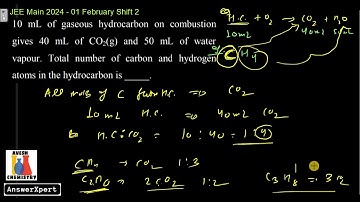 JEE Main 2024 - 01 February Shift 2
10 mL of gaseous hydrocarbon on combustion
gives 40 mL of CO2(g) and 50 mL of water
vapour. Total number of carbon and hydrogen
atoms in the hydrocarbon is _____.
H.C. + O2 → CO2 + H2O
10mL 40mL
C Hy
All moles of C from H.C. => CO2
10mL H.C. => 40mL CO2
H.C : CO2 = 10 : 40 = 1 : 4
→ CO2 1:3
→ 2CO2 1:2
C3H8 = 3
AVESH
CHEMISTRY
AnswerXpert